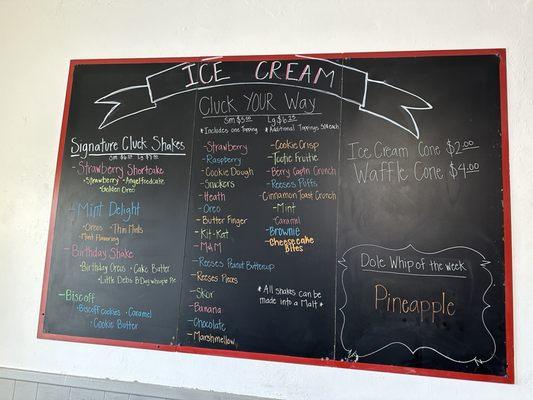 ICE CREAM
Signature Cluck Shakes
Strawberry Shortcake
- Strawberry - Angelfoodcake
- Golden Oreo
- Mint Delight
- Oreos - Thin Mints
- Mint Flavoring
- Birthday Shake
- Birthday Oreos - Cake Batter
- Little Debbs B Day whoopie Pie
- Biscoff
- Biscoff Cookies - Caramel
- Cookie Butter
Cluck YOUR Way
Sm $5.00 Lg $6.25
*Includes one topping *Additional Toppings 50¢ each
- Strawberry
- Raspberry
- Cookie Dough
- Snickers
- Heath
- Oreo
- Butter Finger
- Kit-Kat
- M&M
- Reeses Peanut Buttercup
- Reeses Pieces
- Skor
- Banana
- Chocolate
- Marshmellow
- Cookie Crisp
- Tootie Fruitie
- Berry Captn Crunch
- Reeses Puffs
- Cinnamon Toast Crunch
- Mint
- Caramel
- Brownie
- Cheesecake
Bites
*All shakes can be
made into a Malt*
Ice Cream Cone $2.00
Waffle Cone $4.00
Dole Whip of the week
Pineapple